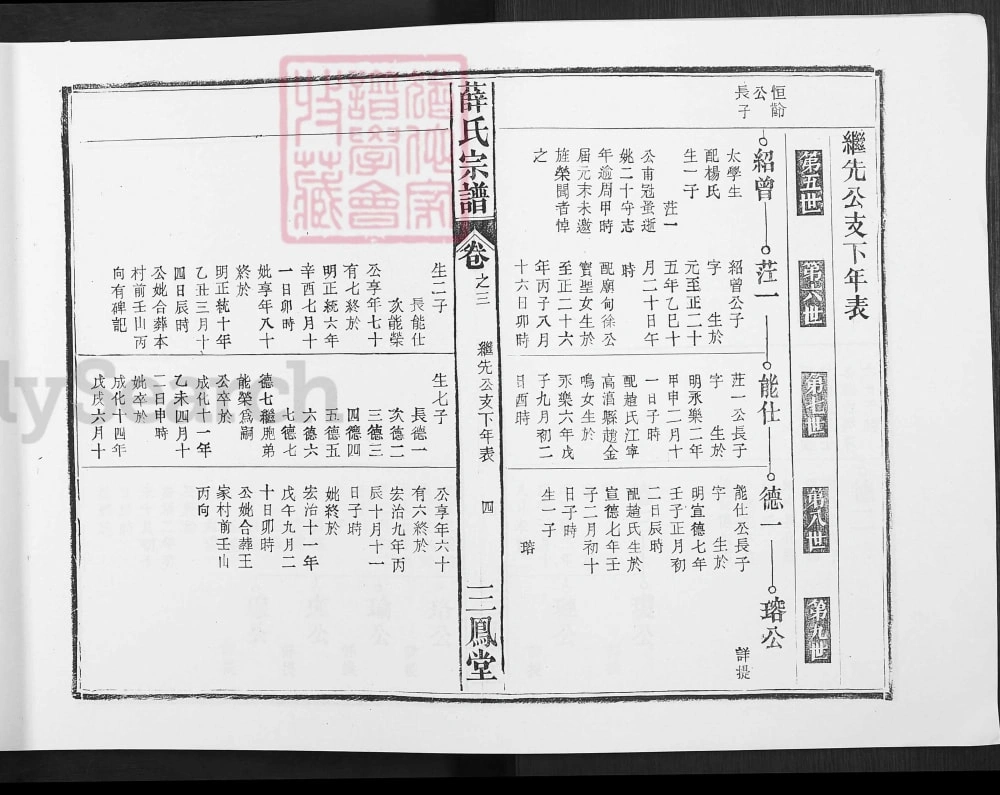 繼先公支下年表
第五世
第六世
第七世
第八世
第九世
恒齡
公
長子
紹曾
莊一
能仕
德一
瑢公
詳提
太學生
配楊氏
生一子
莊一
公甫冠蚤逝
妣二十守志
年逾周甲時
届元末未邀
旌榮聞者悼
之
紹曾公子
字 生於
元至正二十
五年乙巳十
月二十日午
時
配廟甸徐公
寳聖女生於
至正二十六
年丙子八月
十六日卯時
生二子
長能仕
次能榮
公享年七十
有七終於
明正統六年
辛酉七月十
一日卯時
妣享年八十
終於
明正統十年
乙丑三月十
四日辰時
公妣合葬本
村前壬山丙
向有碑記
莊一公長子
字 生於
明永樂二年
甲申二月十
一日子時
配趙氏江寧
高湻縣趙金
鳴女生於
永樂六年戊
子九月初二
日酉時
生七子
長德一
次德二
三德三
四德四
五德五
六德六
七德七
德七繼胞弟
能榮為嗣
公卒於
成化十一年
乙未四月十
二日申時
妣卒於
成化十四年
戊戌六月十
能仕公長子
字 生於
明宣德七年
壬子正月初
二日辰時
配趙氏生於
宣德七年壬
子二月初十
日子時
生一子
瑢
公享年六十
有六終於
宏治九年丙
辰十月十一
日子時
妣終於
宏治十一年
戊午九月二
十日卯時
公妣合葬王
家村前壬山
丙向
薛氏宗譜
卷之三
繼先公支下年表
四
三鳳堂
lySearch